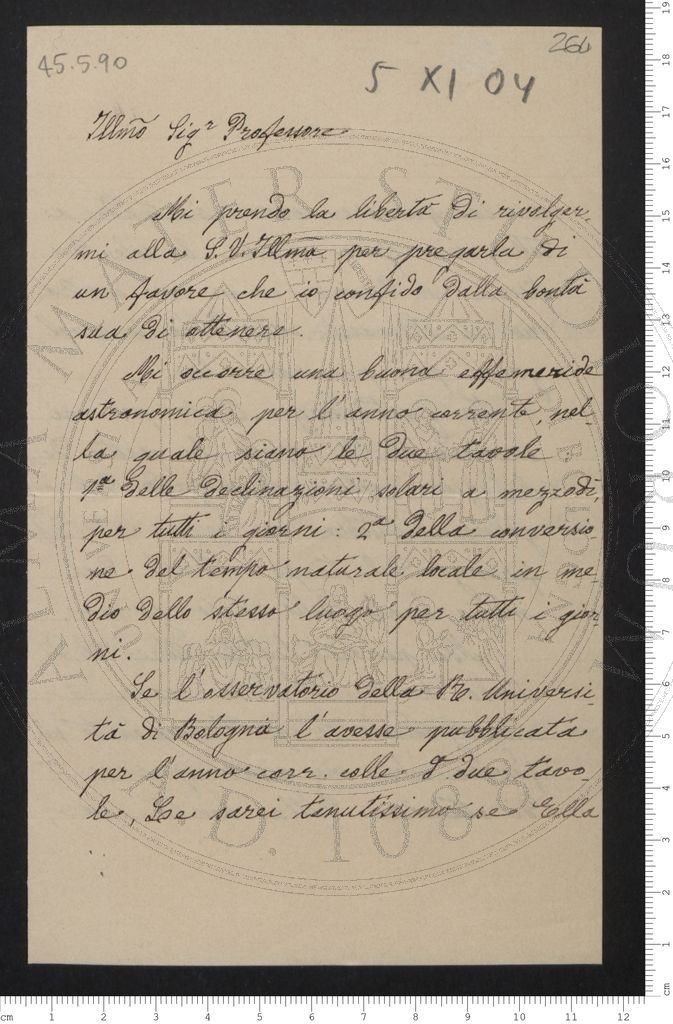 45.5.90
266
5 XI 04
Illm̃o Sigʳ Professore
Mi prendo la libertà di rivolger-
mi alla S. V. Illm̃a per pregarla di
un favore che io confido dalla bontà
sua di ottenere.
Mi occorre una buona effemeride
astronomica per l'anno corrente, nel-
la quale siano le due tavole
1ª delle declinazioni solari a mezzodì,
per tutti i giorni: 2ª della conversio-
ne del tempo naturale locale in me-
dio dello stesso luogo per tutti i gior-
ni.
Se l'osservatorio della R. Universi-
tà di Bologna l'avesse pubblicata
per l'anno corr. colle due tavo-
le, Le sarei tenutissimo se Ella
ALMA MATER STUDIORUM
A.D. 1088